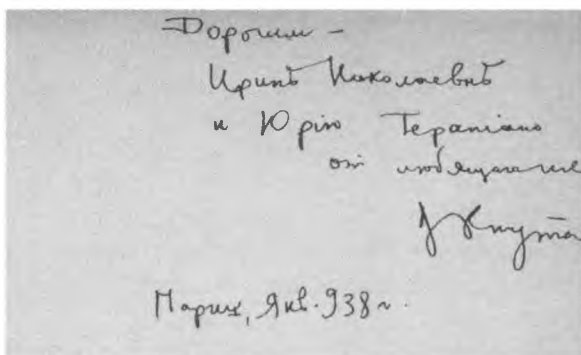 Дорогим –
Иринѣ Николаевнѣ
и Юрію Терапіано
от любящаго их
Д Кнута
Париж, Янв. 938 г.